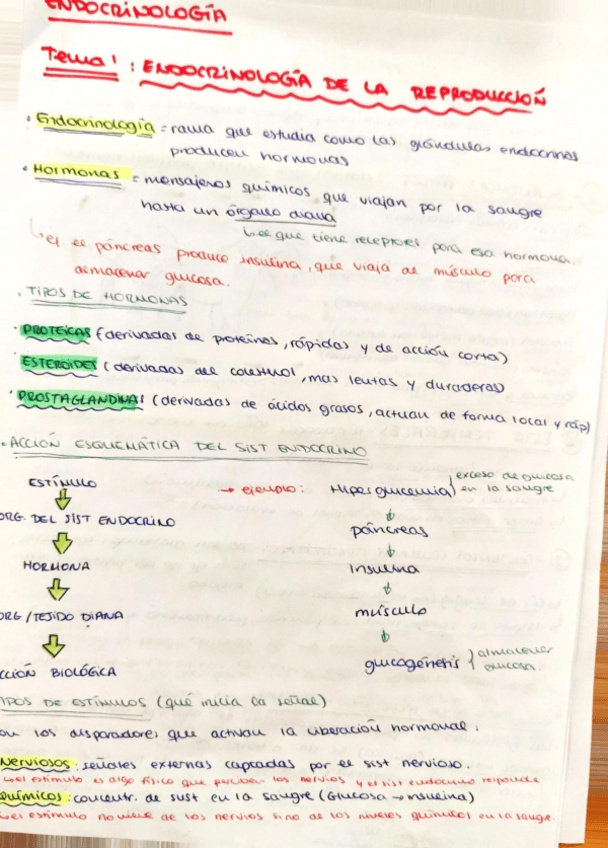 ENDOCRINOLOGÍA
Tema 1: ENDOCRINOLOGÍA DE LA REPRODUCCIÓN
· Endocrinología = rama que estudia como las glándulas endocrinas
producen hormonas
· Hormonas = mensajeros químicos que viajan por la sangre
hasta un órgano diana
↳ es que tiene receptores para esa hormona.
↳ ej el páncreas produce insulina, que viaja al músculo para
almacenar glucosa.
. TIPOS DE HORMONAS
· PROTEICAS (derivadas de proteínas, rápidas y de acción corta)
· ESTEROIDES (derivadas del colesterol, mas lentas y duraderas)
· PROSTAGLANDINAS (derivadas de ácidos grasos, actuan de forma local y ráp)
· ACCIÓN ESQUEMÁTICA DEL SIST ENDOCRINO
ESTÍMULO → ejemplo: Hiperglucemia } exceso de glucosa
en la sangre
ORG. DEL SIST ENDOCRINO páncreas
HORMONA insulina
ORG / TEJIDO DIANA músculo
CCIÓN BIOLÓGICA glucogénesis { almacenar
glucosa.
IPOS DE ESTÍMULOS (qué inicia la señal)
on los disparadores que activan la liberación hormonal:
Nerviosos: señales externas captadas por el sist nervioso.
↳ el estímulo es algo físico que perciben los nervios y el sist endocrino responde
químicos: concentr. de sust en la sangre (Glucosa → insulina)
↳ el estímulo no viene de los nervios sino de los niveles químicos en la sangre.